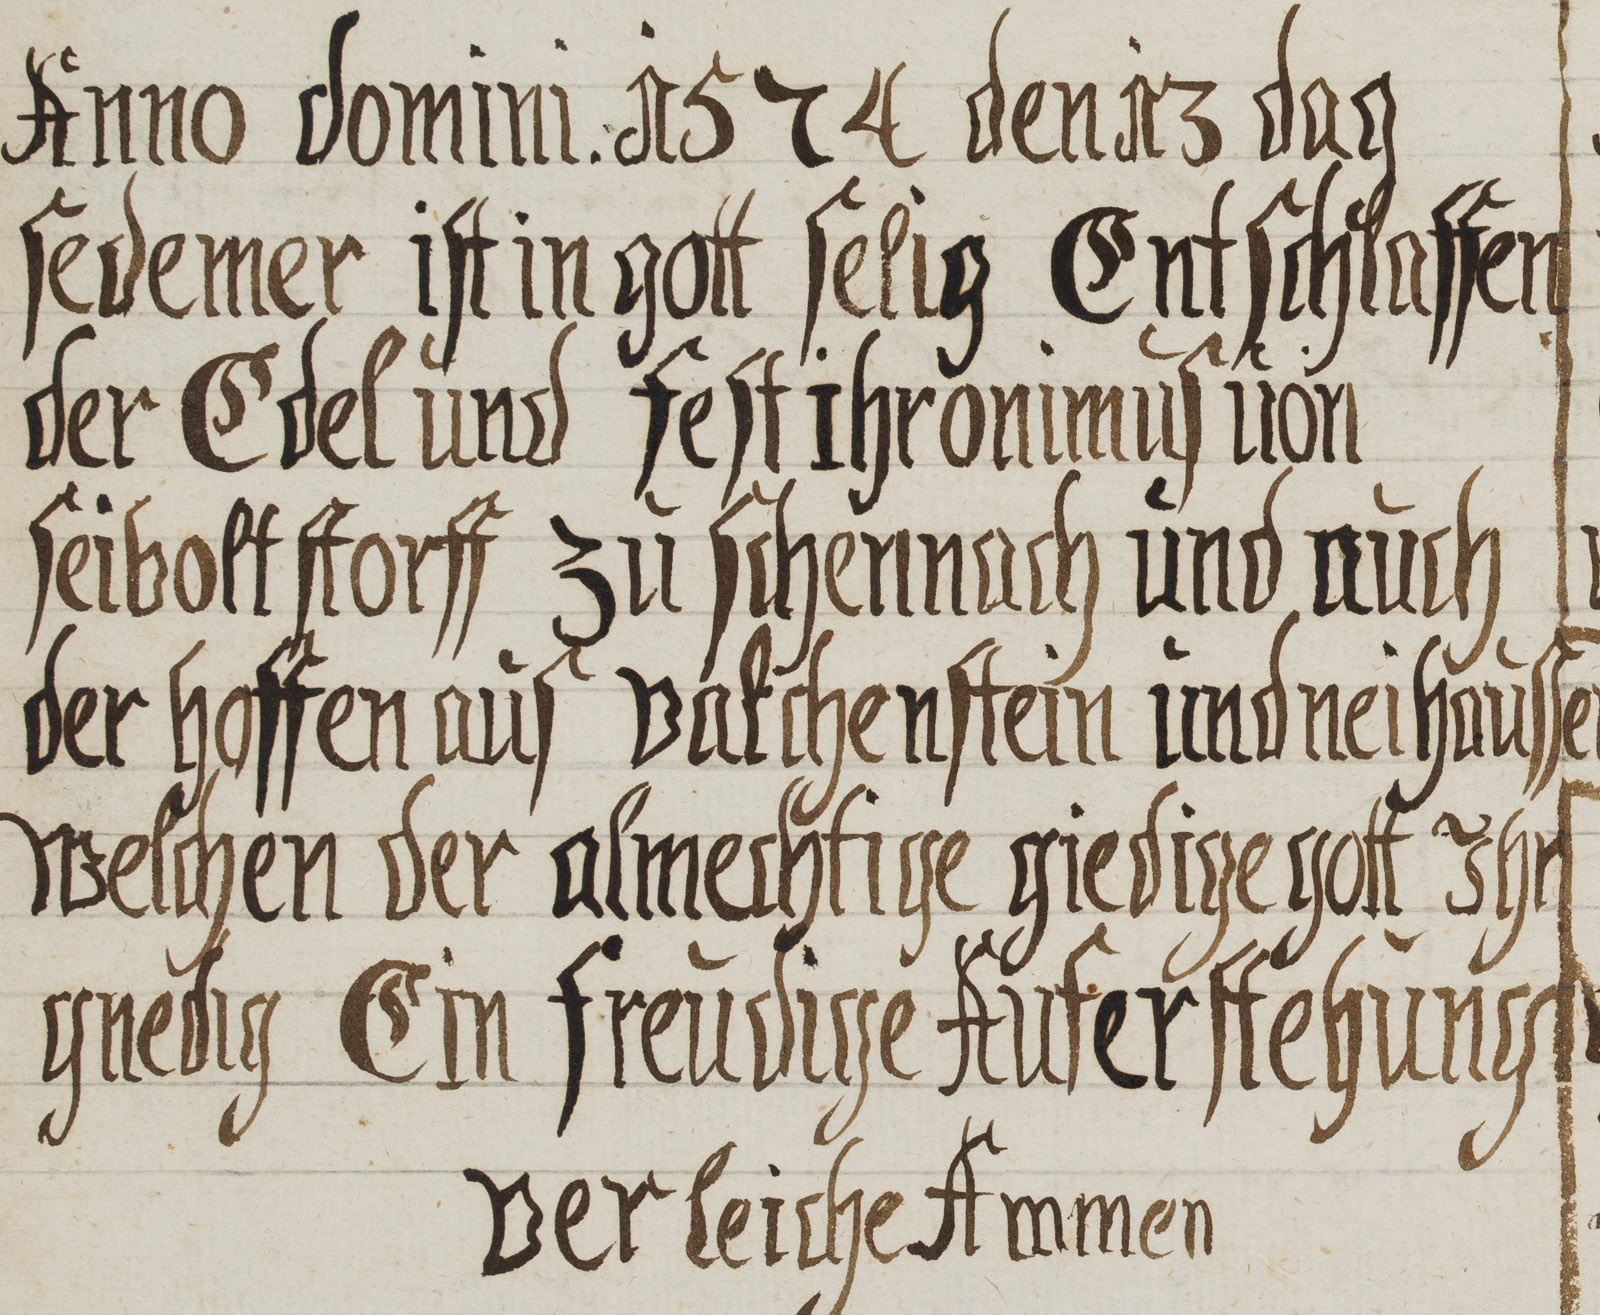 Anno domini. 1574 den 13 dag
sedemer ist in gott selig Entschlaffen
der Edel und fest ihronimus von
seiboltstorff zu schennach und auch
der hoffen aus vakchenstein und neihaussen
welchen der almechtige giedige gott Ihr
gnedig Ein freudige Auferstehung
verleiche Ammen